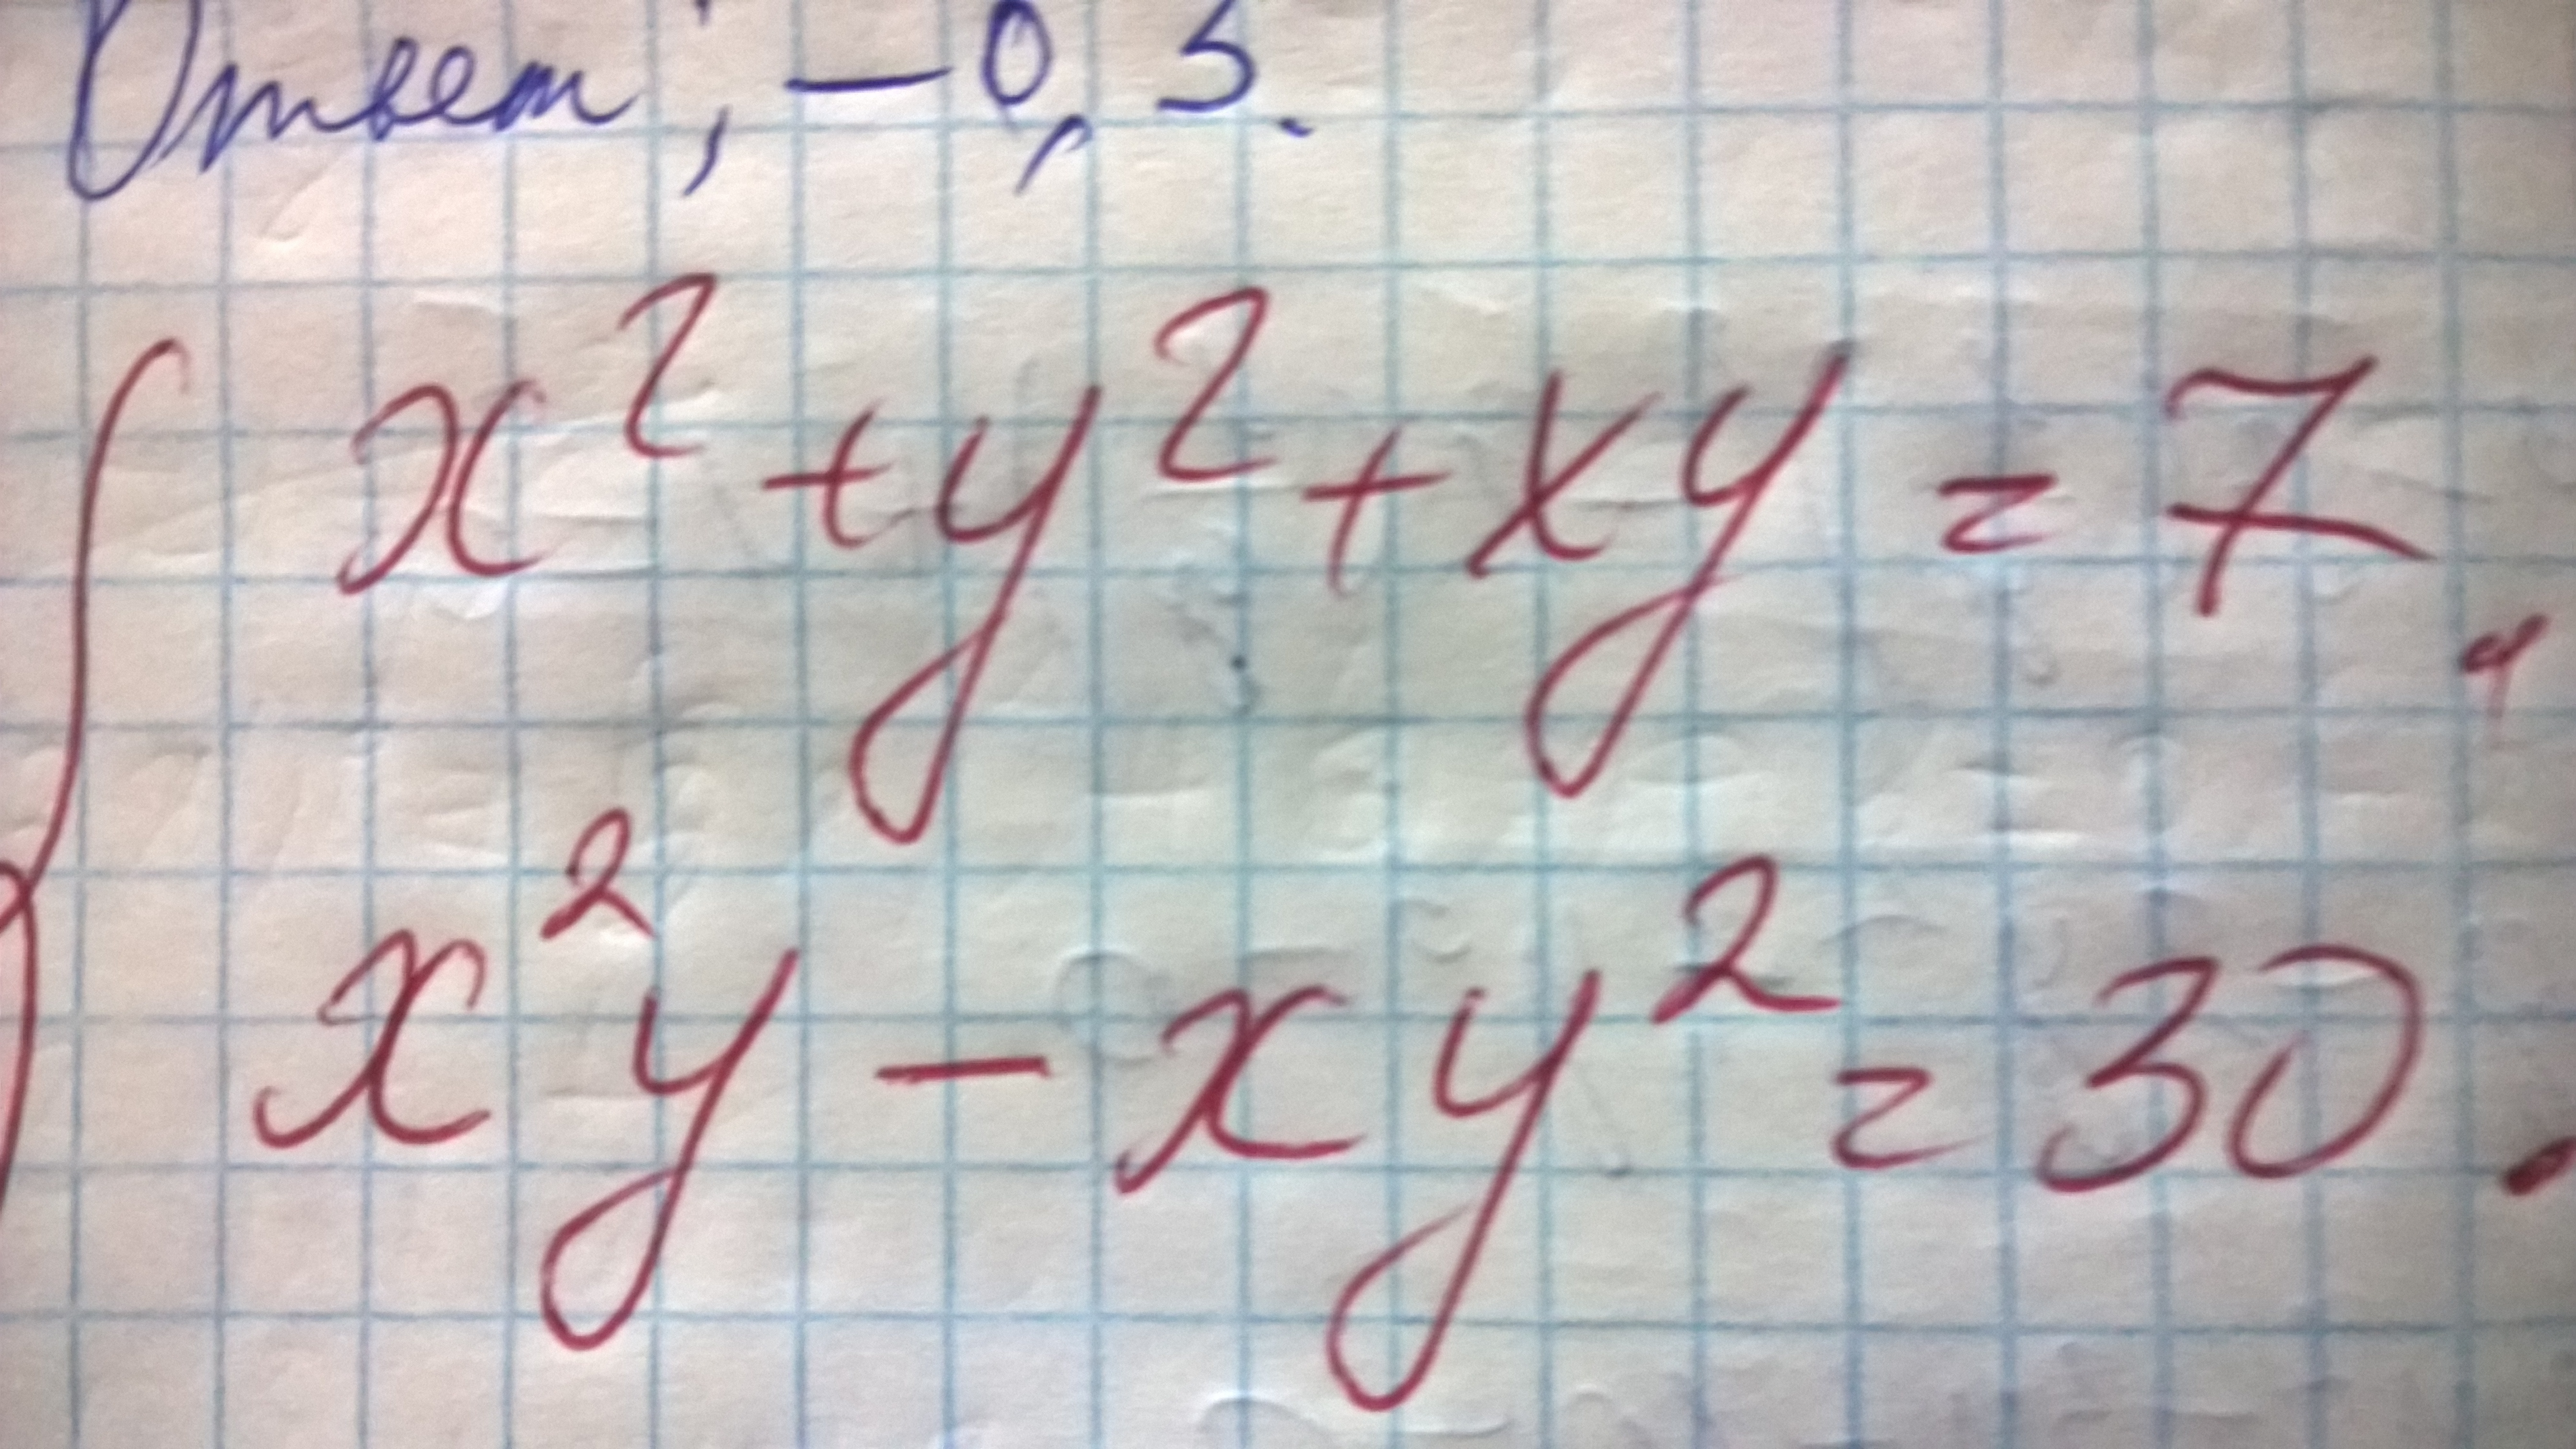 Ответ: -0,5.
x² + y² + xy = 7,
x²y - xy² = 30.